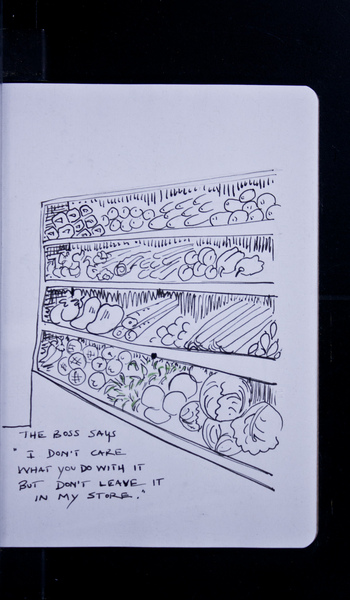 THE BOSS SAYS
" I DON'T CARE
WHAT YOU DO WITH IT
BUT DON'T LEAVE IT
IN MY STORE."